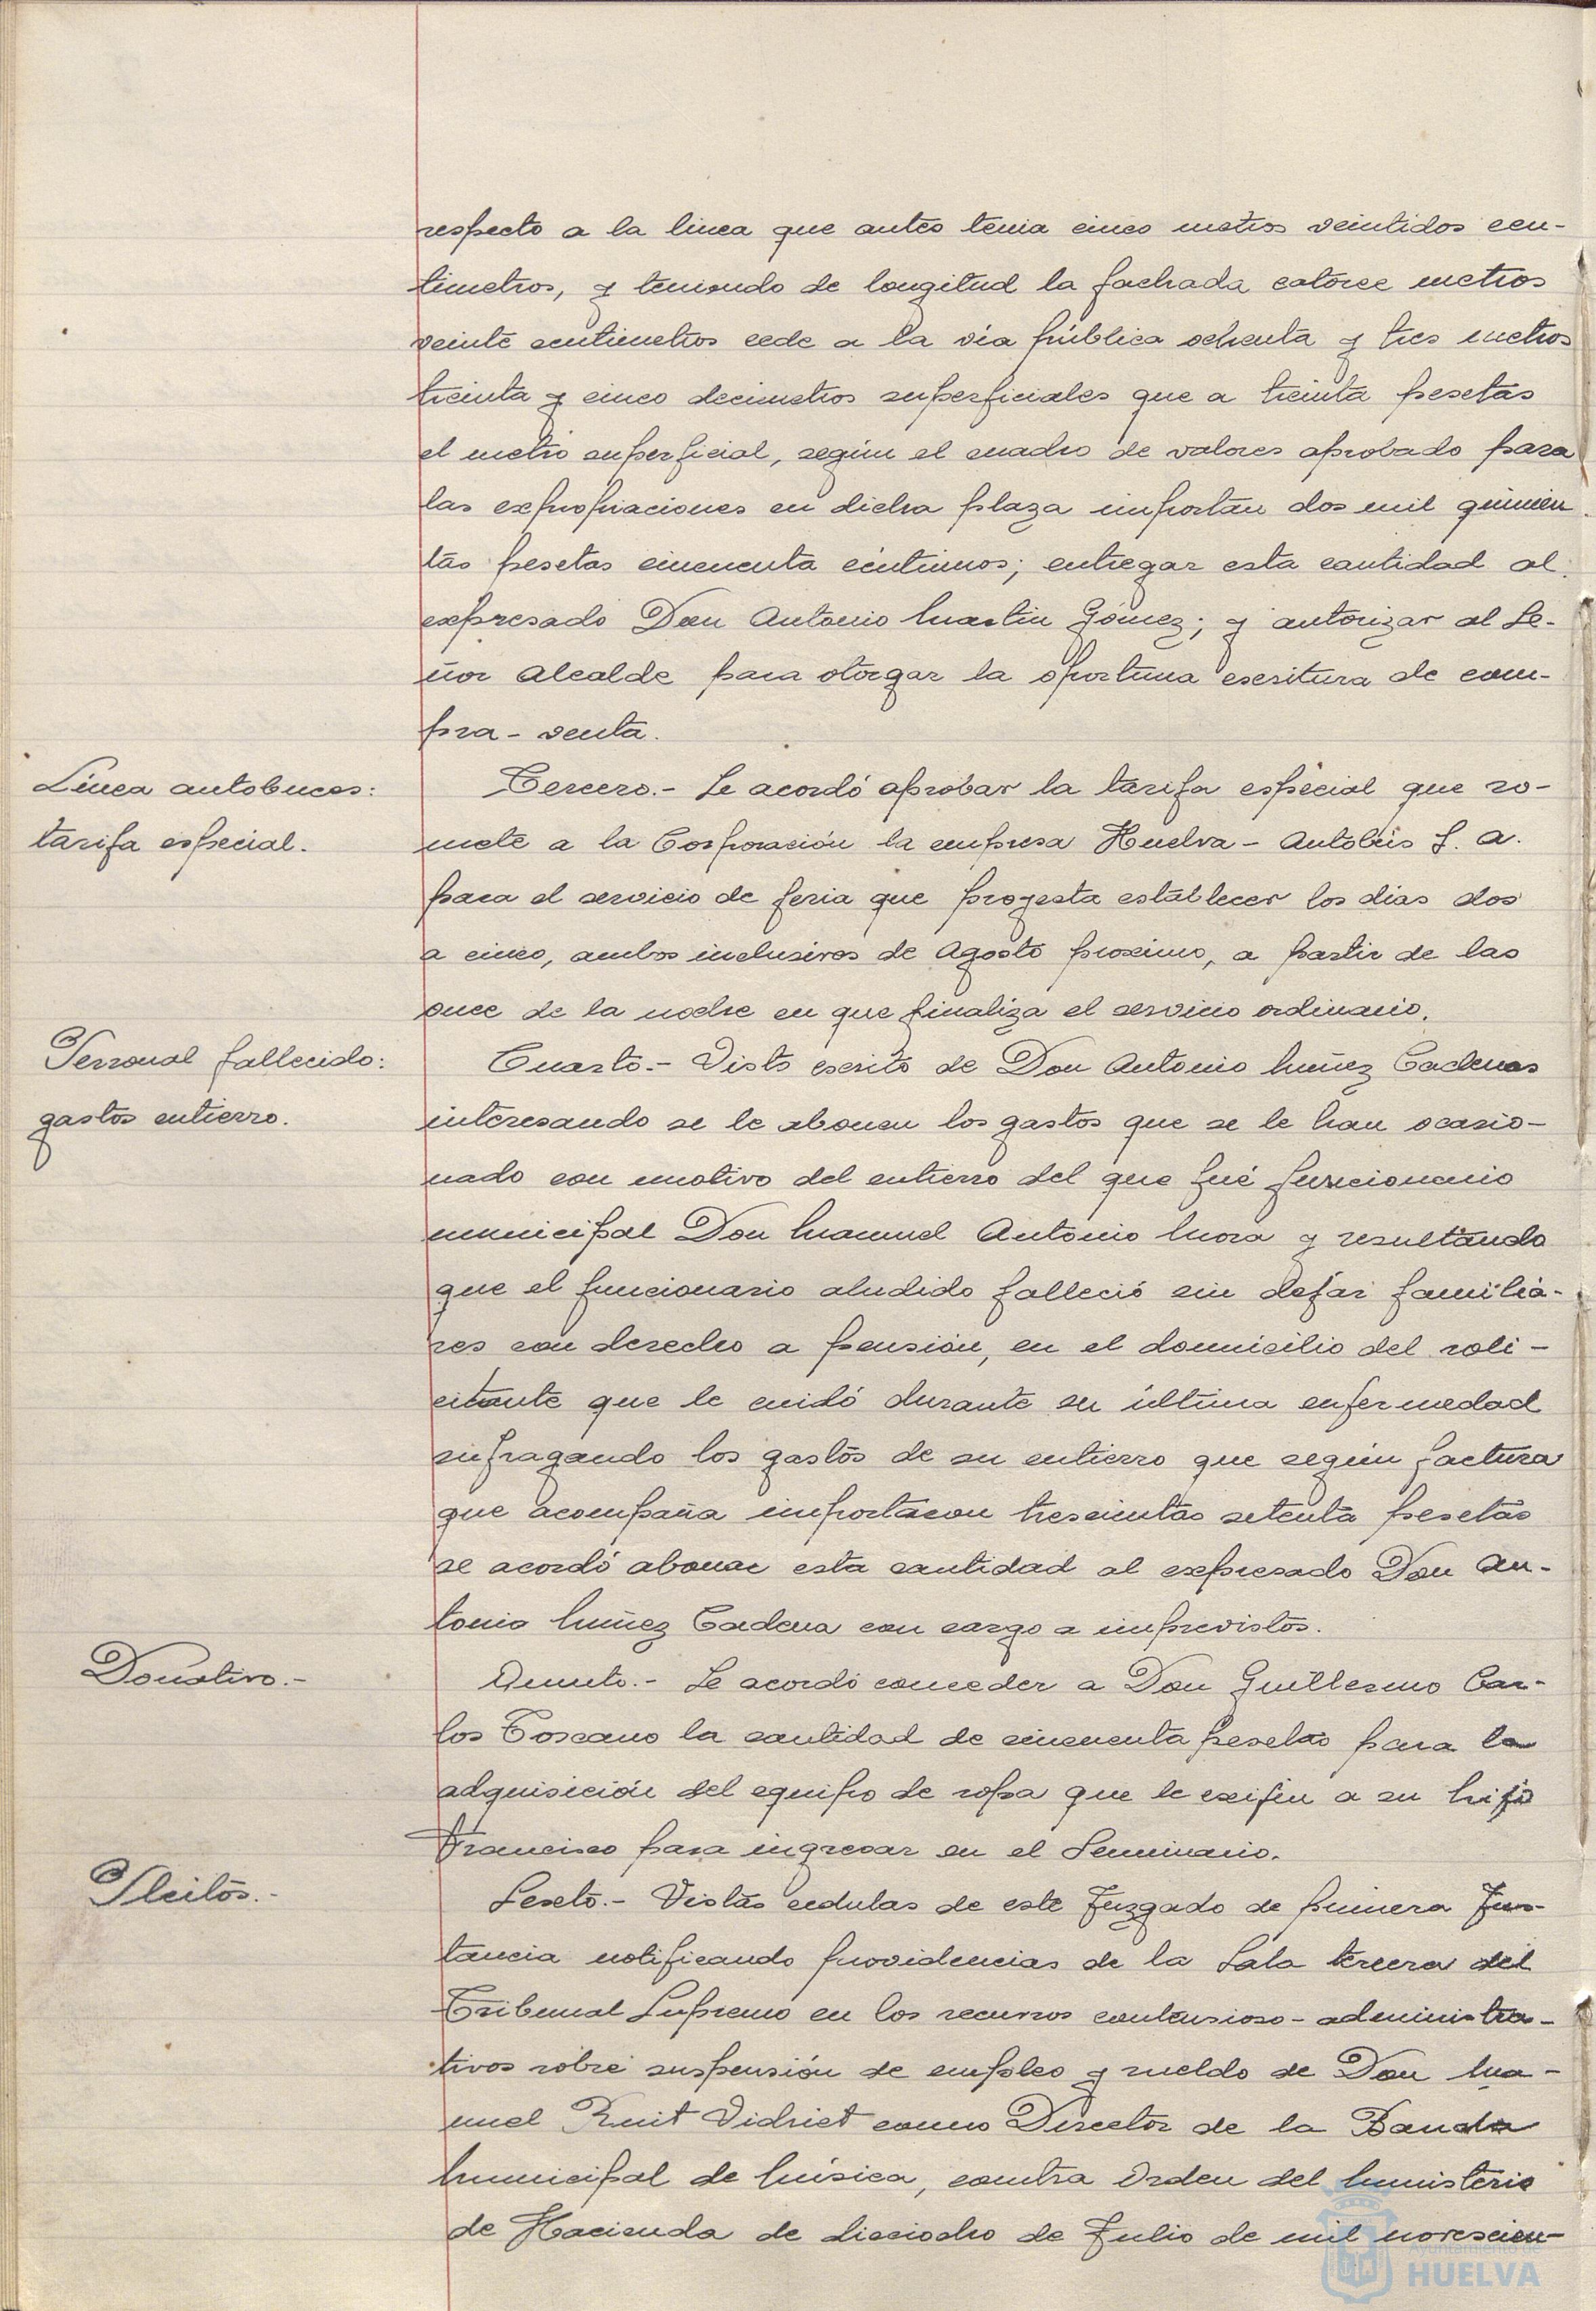 respecto a la linea que antes tenia cinco metros veintidos cen-
timetros, y teniendo de longitud la fachada catorce metros
veinte centimetros cede a la vía pública ochenta y tres metros
treinta y cinco decimetros superficiales que a treinta pesetas
el metro superficial, según el cuadro de valores aprobado para
las expropiaciones en dicha plaza importan dos mil quinien
tas pesetas cincuenta céntimos; entregar esta cantidad al
expresado Don Antonio Martin Gómez; y autorizar al Se-
ñor Alcalde para otorgar la oportuna escritura de com-
pra-venta.
Línea autobuces:
tarifa especial.
Tercero.- Se acordó aprobar la tarifa especial que so-
mete a la Corporación la empresa Huelva-Autobús S. A.
para el servicio de feria que proyecta establecer los días dos
a cinco, ambos inclusives de Agosto proximo, a partir de las
once de la noche en que finaliza el servicio ordinario.
Personal fallecido:
gastos entierro.
Cuarto.- Visto escrito de Don Antonio Muñez Cadenas
interesando se le abonen los gastos que se le han ocasio-
nado con motivo del entierro del que fué funcionario
municipal Don Manuel Antonio Mora y resultando
que el funcionario aludido falleció sin dejar familia-
res con derecho a pensión, en el domicilio del soli-
citante que le cuidó durante su última enfermedad
sufragando los gastos de su entierro que según factura
que acompaña importaron trescientas setenta pesetas
se acordó abonar esta cantidad al expresado Don An-
tonio Muñez Cadena con cargo a imprevistos.
Donativo.-
Quinto.- Se acordó conceder a Don Guillermo Car-
los Toscano la cantidad de cincuenta pesetas para la
adquisición del equipo de ropa que le exijen a su hijo
Francisco para ingresar en el Seminario.
Pleitos.-
Sexto.- Vistas cedulas de este Juzgado de primera Ins-
tancia notificando providencias de la Sala tercera del
Tribunal Supremo en los recursos contensioso-administra-
tivos sobre suspensión de empleo y sueldo de Don Ma-
nuel Ruit Vidriet como Director de la Banda
Municipal de Música, contra Orden del Ministerio
de Hacienda de dieciocho de Julio de mil novescien-
Ayuntamiento de
HUELVA